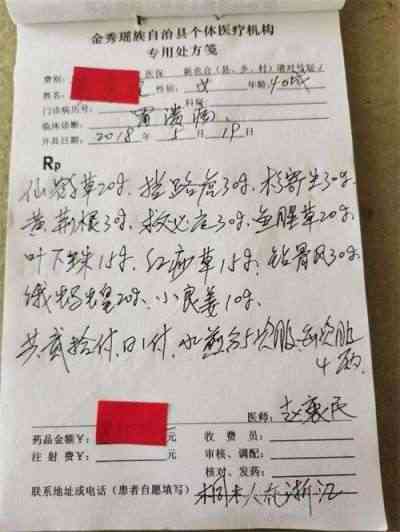 金秀瑶族自治县个体医疗机构
专用处方笺
费别： 医保 新农合（县、乡、村）
姓名： 性别：女 年龄：40岁
门诊病历号： 科
临床诊断： 胃溃疡、
开具日期：2018年5月19日
Rp
仙鹤草20g、挡路虎30g、桑寄生30g、
黄荆根30g、救必应30g、鱼腥草20g、
叶下珠15g、红 草15g、钻骨风30g、
小良姜10g、
共贰拾付、日1付、水煎分5次服、每次服
4两
医师：赵
药品金额￥： 元 收费员：
注射费￥： 元 审核、调配：
核对、发药：
联系地址或电话（患者自愿填写） 浙江